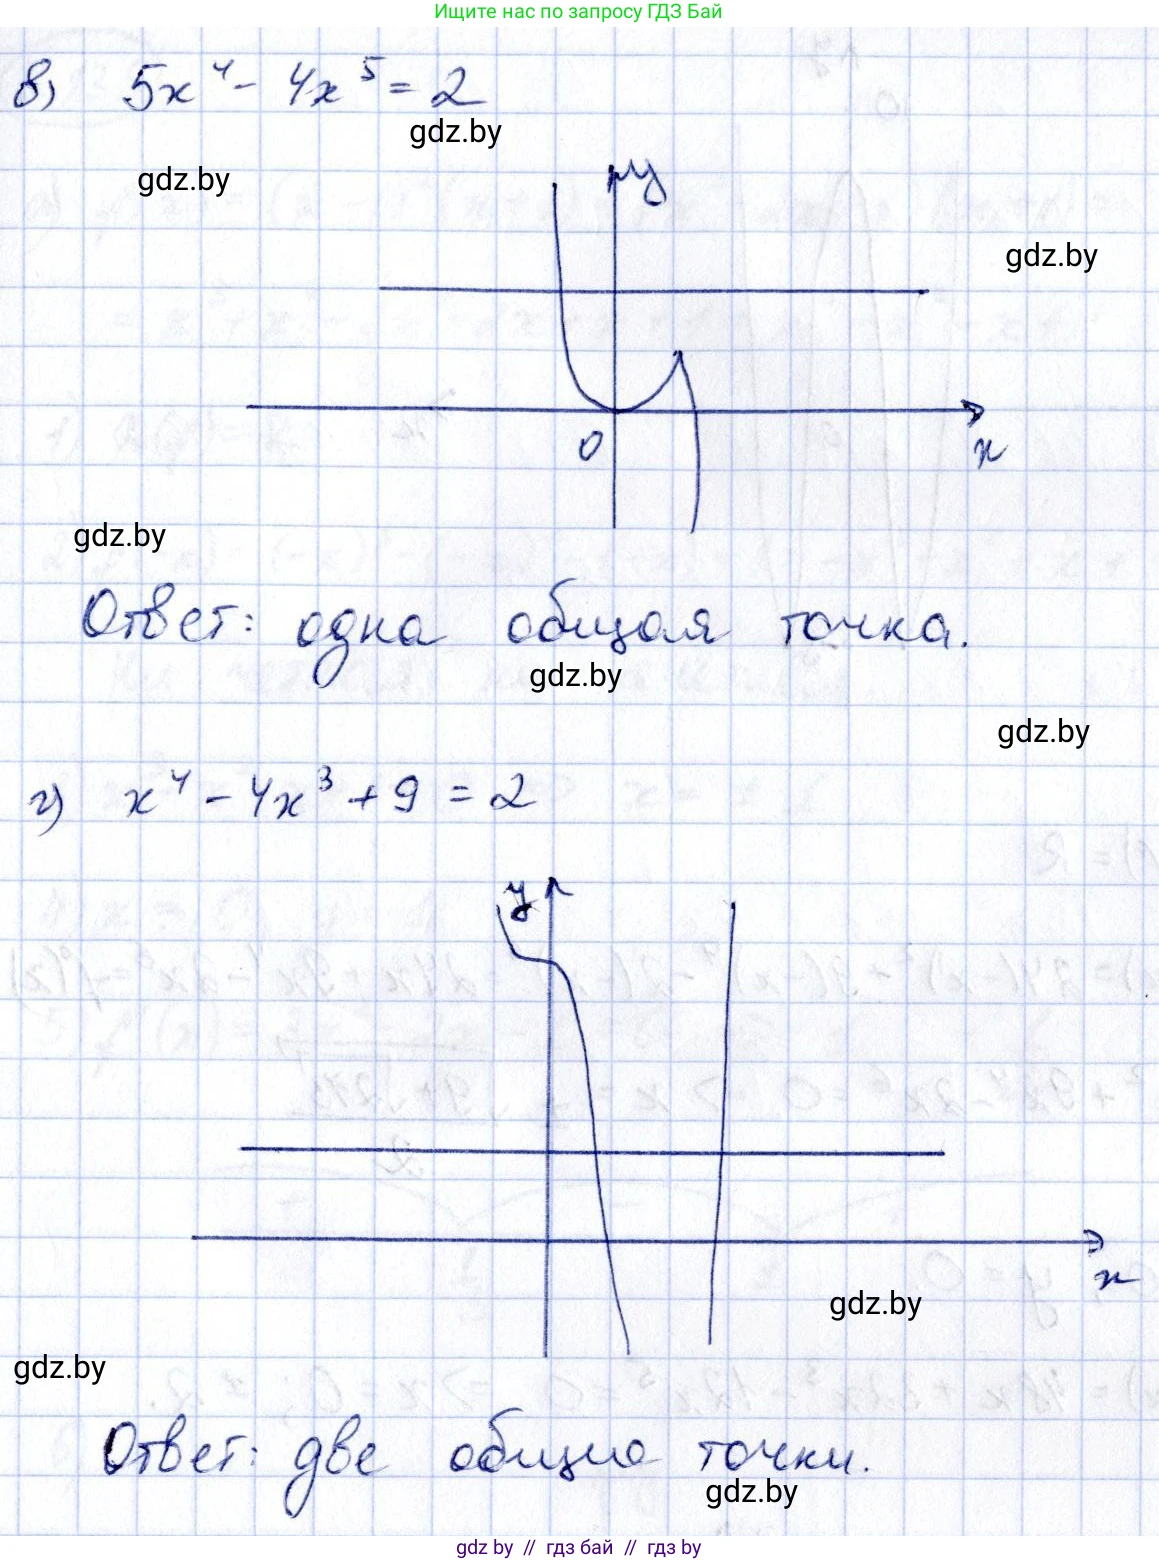 Ищите нас по запросу ГДЗ Бай
в) 5x⁴ - 4x⁵ = 2
gdz.by
gdz.by
y
gdz.by
0
x
gdz.by
Ответ: одна общая точка.
gdz.by
gdz.by
г) x⁴ - 4x³ + 9 = 2
y
x
gdz.by
gdz.by
Ответ: две общие точки.
gdz.by
gdz by // гдз бай // гдз by